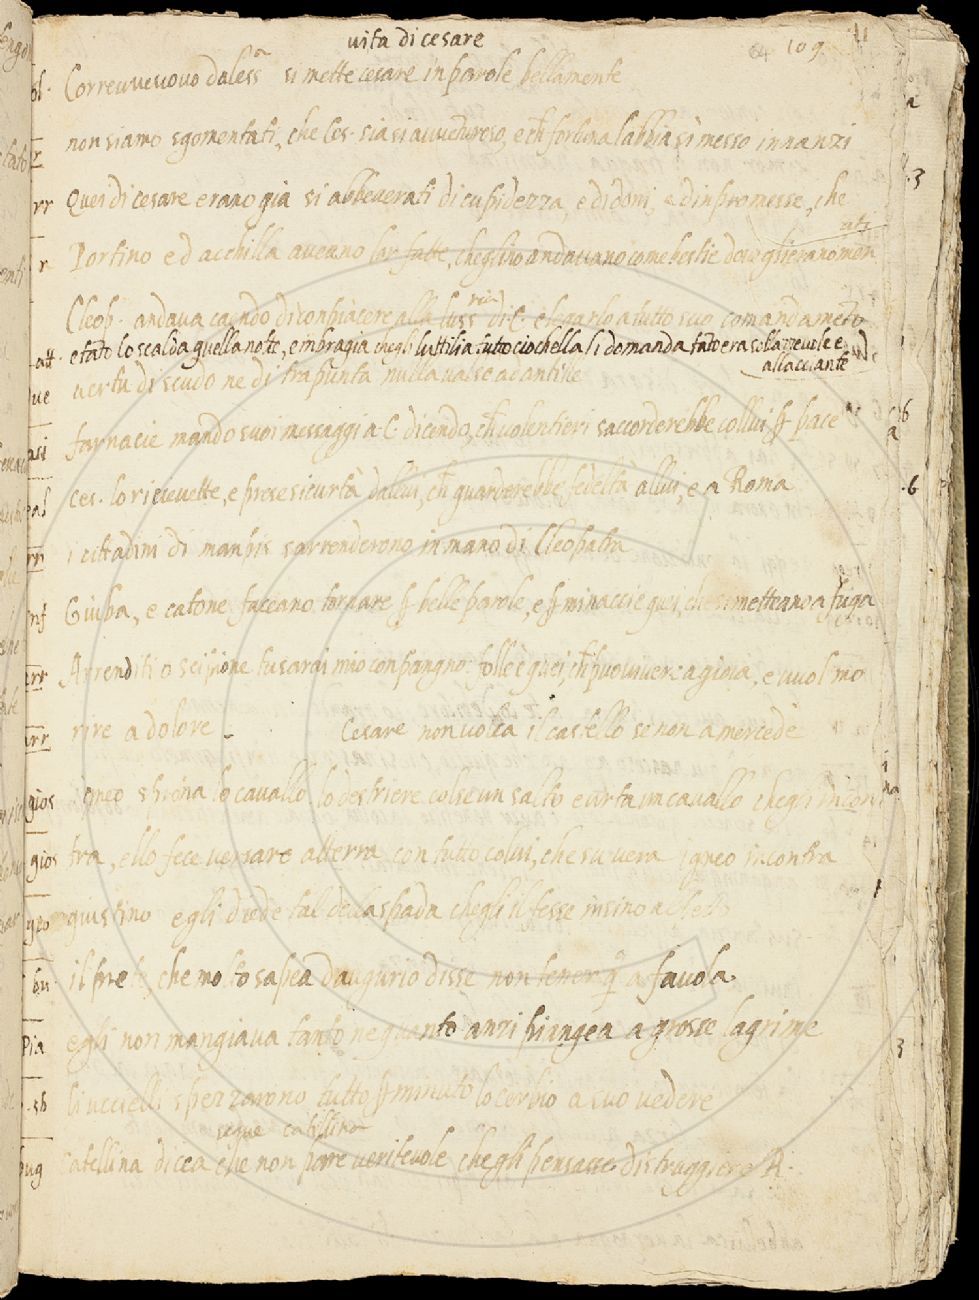 vita di cesare
109
Correuveuovo daless.a si mette cesare in parole bellamente
non siamo sgomentati, che Ces. sia si avventuroso, e ch fortuna l'abbia sì messo innanzi
Quei di cesare erano già sì abbeverati di cupidezza, e di doni, e di inpromesse, che
Fortino ed acchilla aveano lor fatte, cheglino andavano come bestie dove glieranomen
ati
Cleop. andava caendo di conpiacere alla luss ria di C. e legarlo a tutto suo comandameto
e tato lo scalda quella notte, e mbragia chegli l'uttilia tutto ciochella li domanda tato era sollazzevole e
allacciante
vertu di scudo ne di trapunta nulla valse ad antille
farnacie mando suoi messaggi a C. dicendo, ch volentieri saccorderebbe collui p pace
ces. lo ricievette, e prese sicurtà dallui, ch guarderebbe fedeltà allui, e a Roma
i cittadini di manpis sarrenderono in mano di Cleopatra
Giuba, e catone faceano tornare p belle parole, e p minaccie quei, che si metteano a fuga
Arrenditi o scipione tu sarai mio conpangno: folle è quei, ch puo vivere a gioia, e vuol mo
rire a dolore. Cesare non volea il castello se non a mercede
igneo sprona lo cavallo lo destriere colse un salto e urta un cavallo chegli incon
tra, ello fece versare atterra con tutto colui, che su vera igneo incontra
giustino egli diede tal della spada chegli il fesse insino al petto
il prete, che molto sapea daugurio disse non tener q a favola.
egli non mangiava tanto ne quanto anzi piangea a grosse lagrime
li uccielli sperzarono tutto p minuto lo corbio a suo vedere
segue catillina
Catellina dicea che non pare veritevole chegli pensasse distruggiere R.